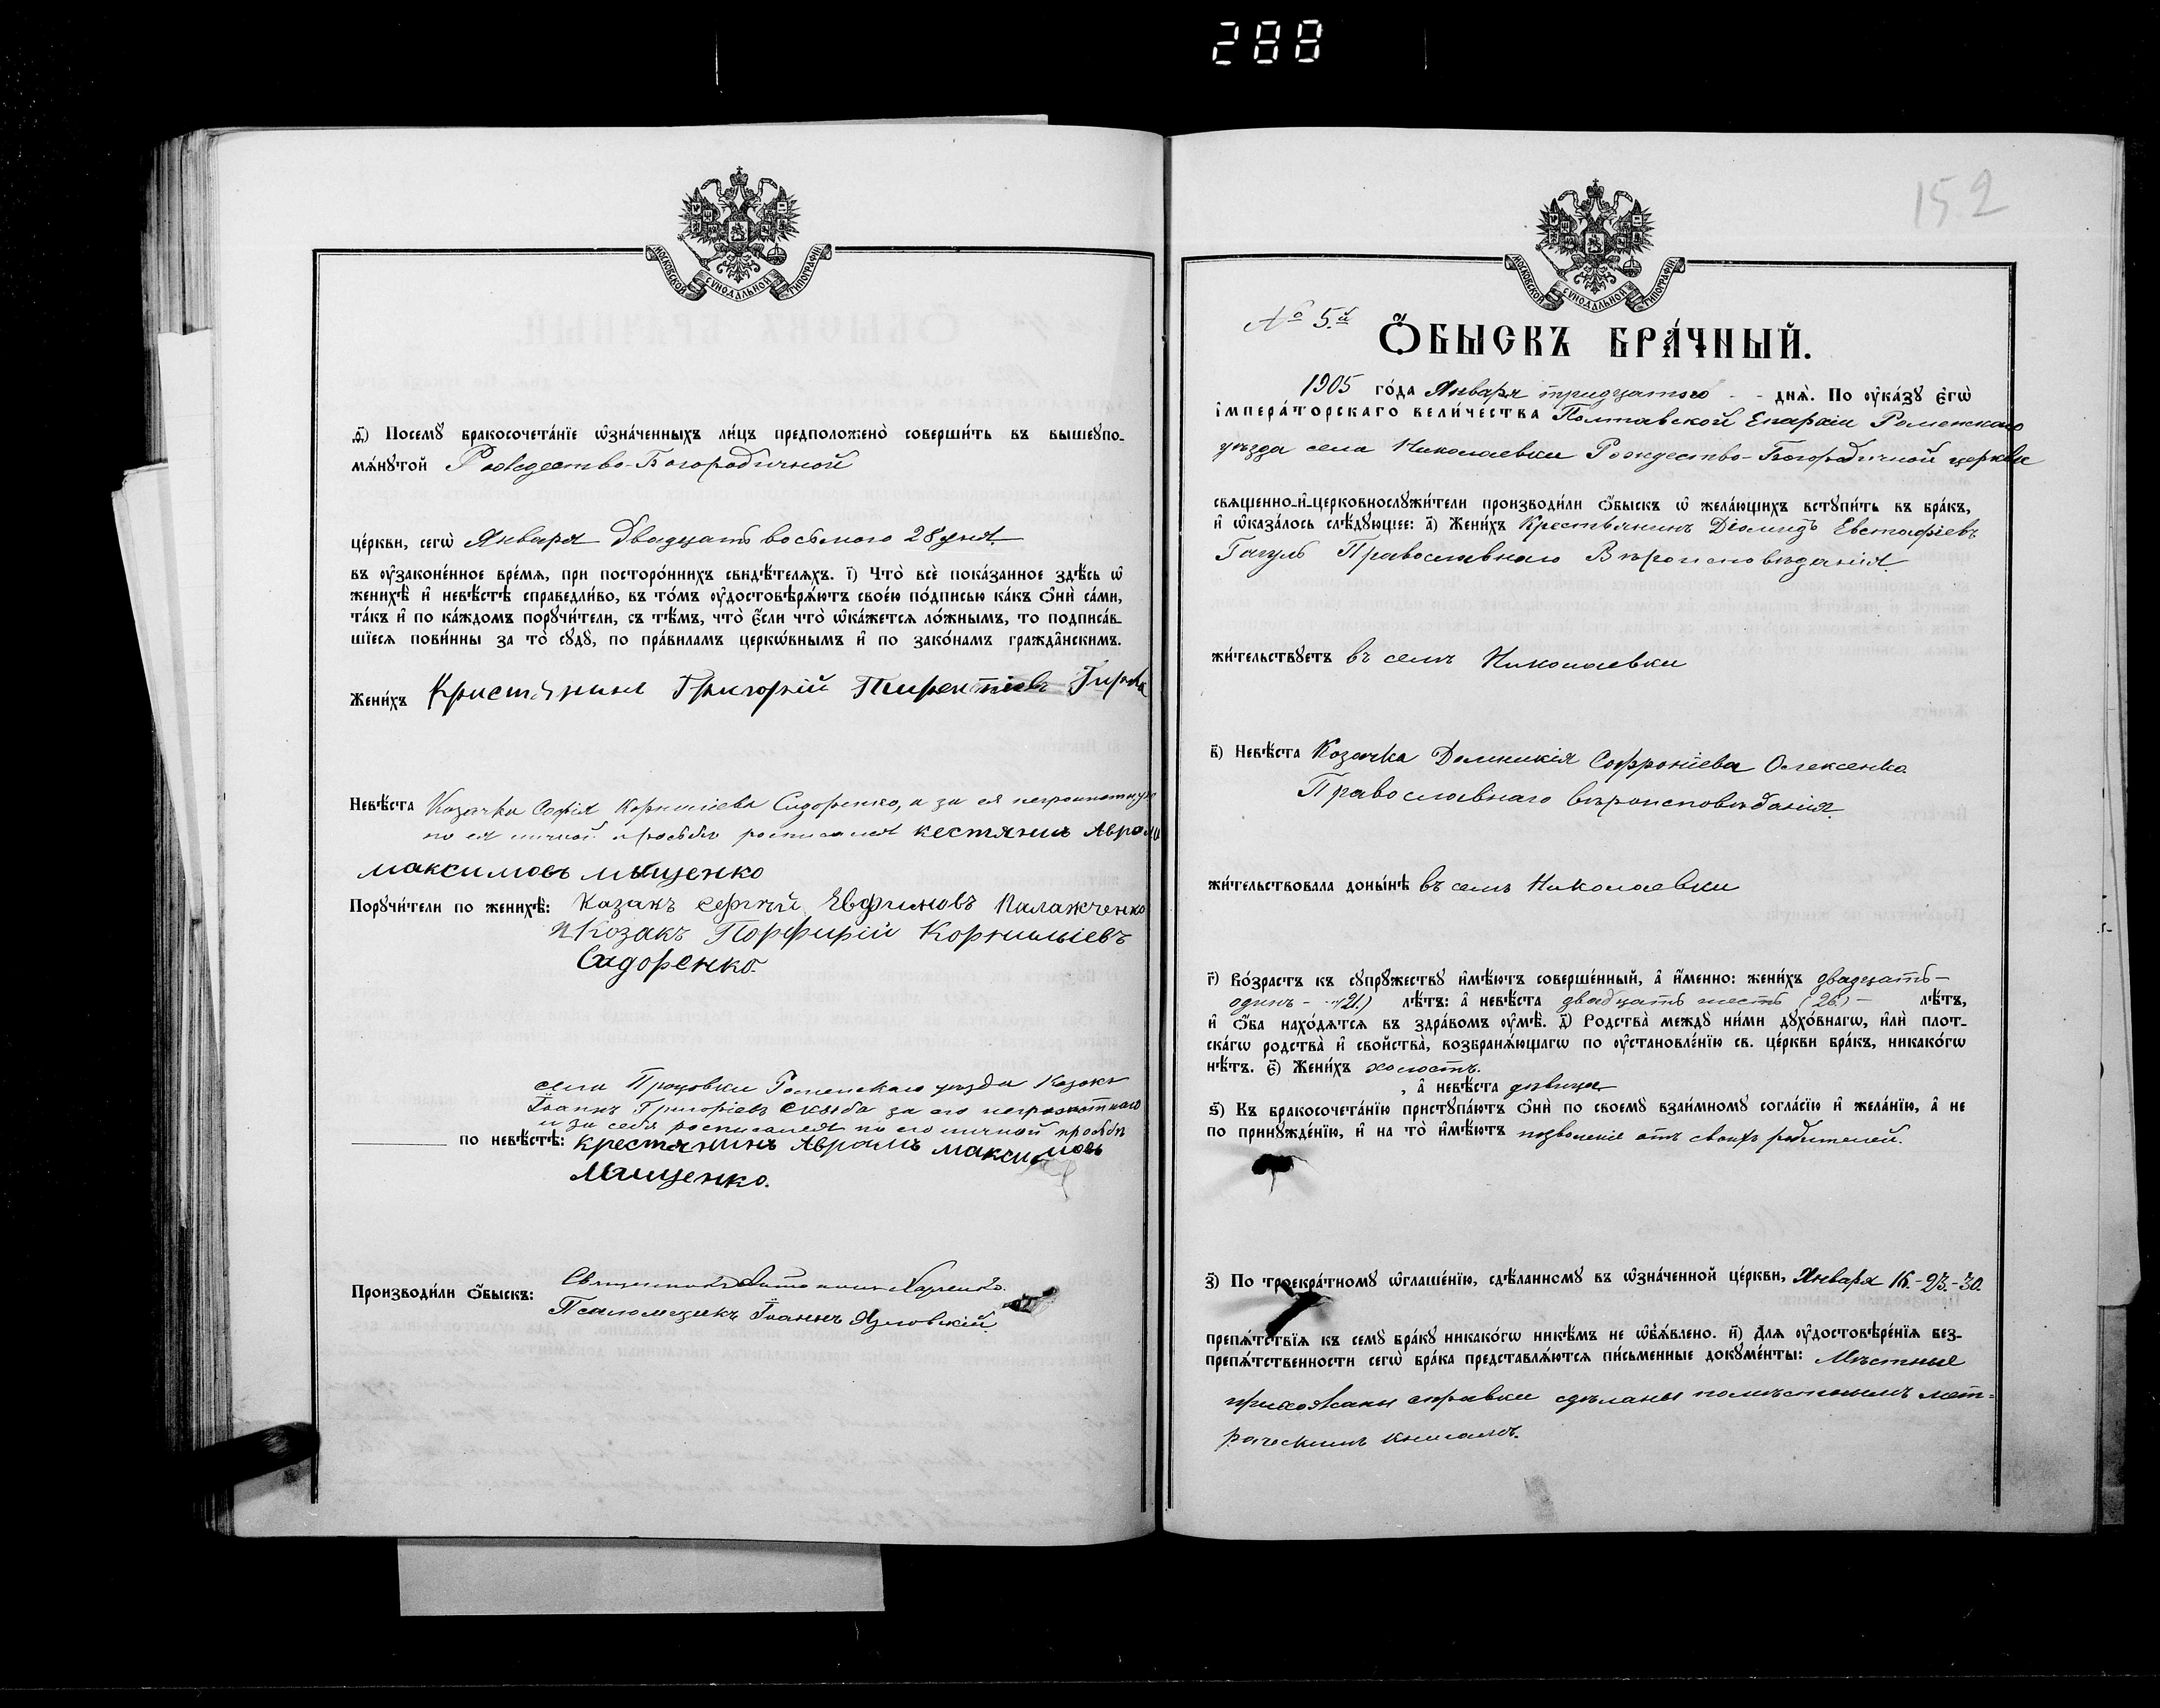 288
МОСКОВСКОЙ СѴНОДАЛЬНОЙ ТИПОГРАФІИ
ѳ҃) Посемꙋ̀ бракосочета́нїе ѡ҆зна́ченныхъ ли́цъ предположено̀ соверши́ть въ вышеꙋпо-
мѧ́нꙋтой Рождество-Богородичной
це́ркви, сегѡ̀ Января двадцать восьмого 28 дня
въ ᲂу҆зако́ненное вре́мѧ, при посторо́ннихъ свидѣ́телѧхъ. і҃) Что̀ всѐ пока́занное здѣ́сь ѡ҆
женихѣ̀ и҆ невѣ́стѣ справедли́во, въ то́мъ ᲂу҆достовѣрѧ́ютъ свое́ю по́дписью ка́къ ѻ҆нѝ са́ми,
та́къ и҆ по ка́ждомъ порꙋчи́тели, съ тѣ́мъ, что̀ є҆́сли что̀ ѡ҆ка́жется ло́жнымъ, то подписа́в-
шїеся пови́нны за то̀ сꙋдꙋ̀, по пра́виламъ церко́внымъ и҆ по зако́намъ гражда́нскимъ.
Жени́хъ Григорій
Невѣ́ста Козачка Софія Корниліева Сидоренко, а за ея неграмотную
по ея личной просьбѣ росписался кестянин Аврами
максимовъ мищенко
Порꙋчи́тели по женихѣ̀: Казакъ Сергѣй Евфимовъ Палажченко
и Козакъ Порфирій Корниліевъ
Сидоренко.
села Роменскаго уѣзда Козакъ
Іоаннъ Григоріевъ за его неграмотнаго
и за себя росписался по его личной просьбѣ
по невѣ́стѣ: крестянинъ Аврамъ максимовъ
Мищенко.
Производи́ли ѻ҆́быскъ: Священникъ
Псаломщикъ Іоаннъ
152
МОСКОВСКОЙ СѴНОДАЛЬНОЙ ТИПОГРАФІИ
№ 5.й
Ѻ҆́БЫСКЪ БРА́ЧНЫЙ.
1905 го́да Января тридцатого дня̀. По ᲂу҆ка́зꙋ Є҆гѡ̀
і҆мпера́торскаго вели́чества Полтавской Епархіи Роменскаго
уѣзда села Николаевки Рождество-Богородичной церкви
свѧщенно-и҆-церковнослꙋжи́тели производи́ли ѻ҆́быскъ ѡ҆ жела́ющихъ встꙋпи́ть въ бра́къ,
и҆ ѡ҆каза́лось слѣ́дꙋющее: а҃) Жени́хъ Крестьянинъ Діомидъ Евстафіевъ
Гагуль Православнаго Вѣроисповѣданія.
жи́тельствꙋетъ въ селѣ Николаевки
в҃) Невѣ́ста Козачка Домникія Софроніева Олексенко
Православнаго вѣроисповѣданія.
жи́тельствовала доны́нѣ въ селѣ Николаевки
г҃) Во́зрастъ къ сꙋпрꙋ́жествꙋ и҆мѣ́ютъ соверше́нный, а҆ и҆́менно: жени́хъ двадцать
одинъ - (21.) лѣ́тъ: а҆ невѣ́ста двадцать шесть (26.) - лѣ́тъ,
и҆ ѻ҆́ба нахо́дятся въ здра́вомъ ᲂу҆мѣ̀. д҃) Родства̀ междꙋ̀ ни́ми дꙋхо́внагѡ, и҆лѝ плот-
ска́гѡ родства̀ и҆ свойства̀, возбранѧ́ющагѡ по ᲂу҆становле́нїю св. це́ркви бра́къ, никако́гѡ
нѣ́тъ. є҃) Жени́хъ холостъ.
, а҆ невѣ́ста дѣвица
ѕ҃) Къ бракосочета́нїю пристꙋпа́ютъ ѻ҆нѝ по своемꙋ̀ взаи́мномꙋ согла́сїю и҆ жела́нїю, а҆ не
по принꙋжде́нїю, и҆ на то̀ и҆мѣ́ютъ позволеніе отъ своихъ родителей.
з҃) По троекра́тномꙋ ѡ҆глаше́нїю, сдѣ́ланномꙋ въ ѡ҆зна́ченной це́ркви, Января 16.-23.-30.
препѧ́тствїя къ семꙋ̀ бра́кꙋ никако́гѡ никѣ́мъ не ѡ҆б̾ѧ́влено. и҃) Для ᲂу҆достовѣре́нїя без-
препѧ́тственности сегѡ̀ бра́ка представлѧ́ются пи́сьменные докꙋме́нты: Мѣстные
прихожани справки сдѣланы по мѣстнымъ мет-
рическимъ книгамъ.